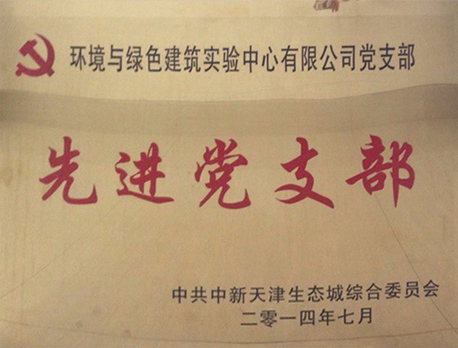 环境与绿色建筑实验中心有限公司党支部
先进党支部
中共中新天津生态城综合委员会
二零一四年七月